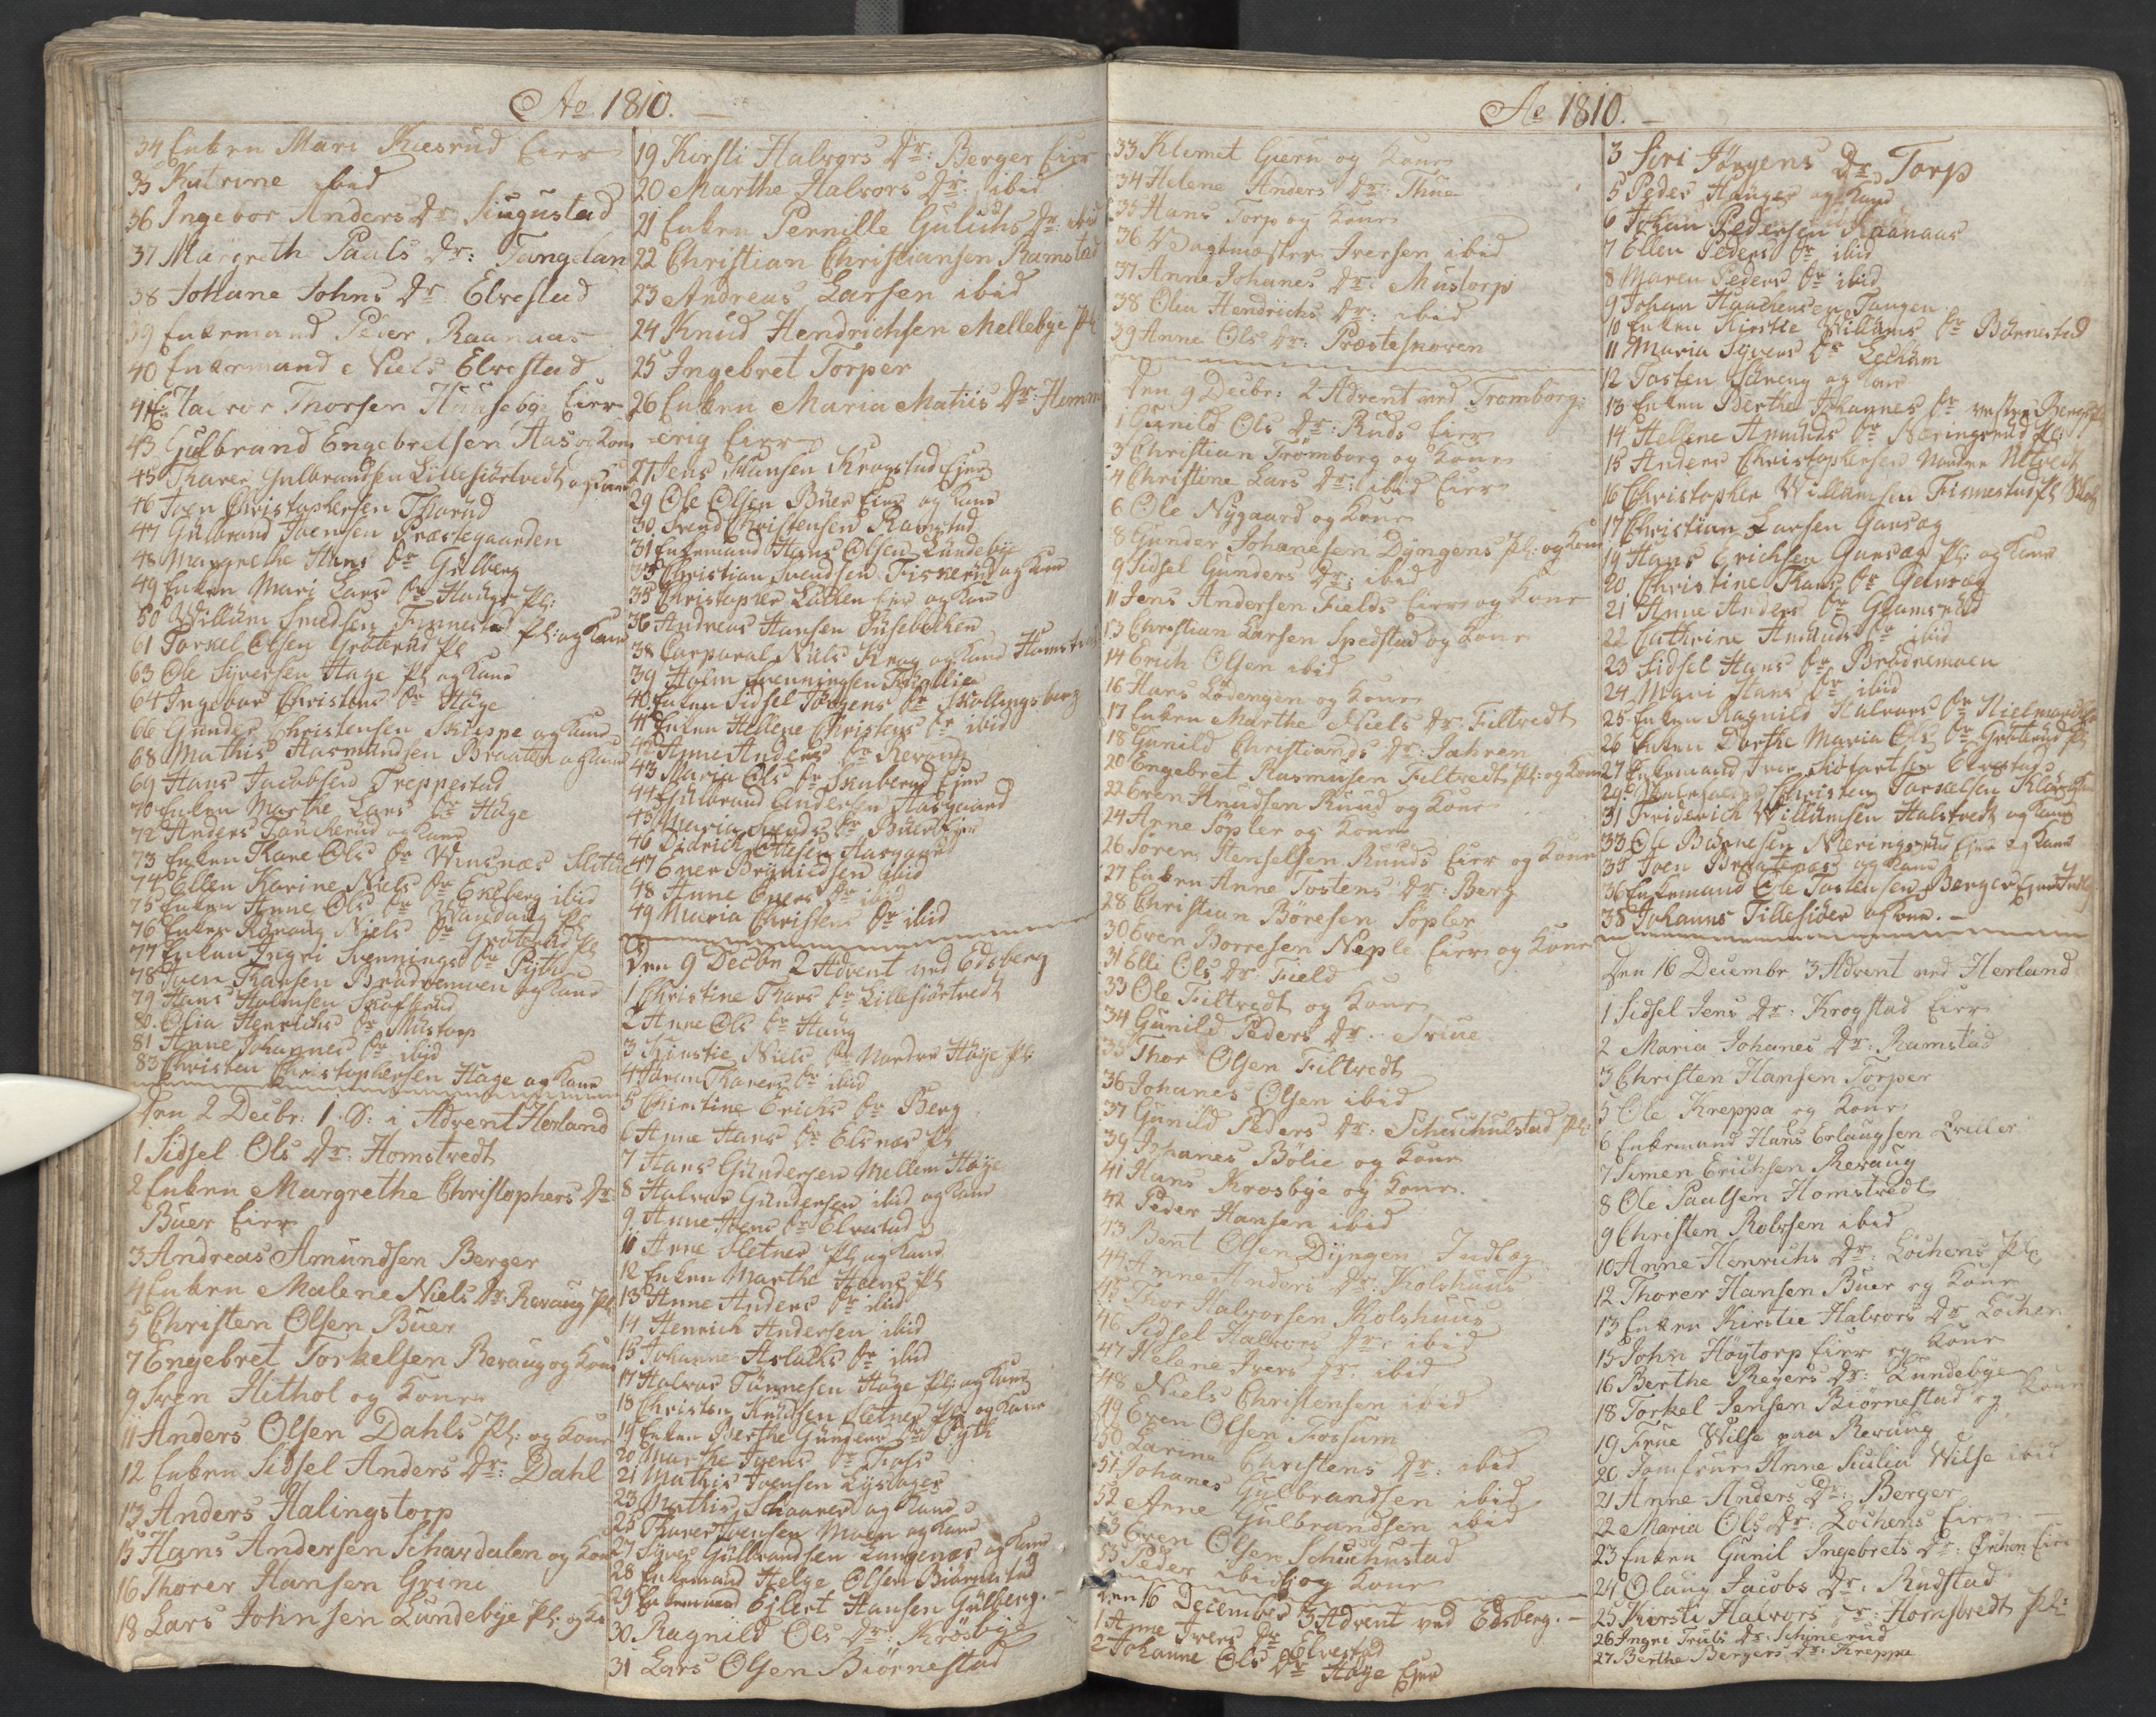 Ao 1810.
34 Enken Mari Kiesrud Eier
35 Katrine ibid
36 Ingebor Anders Dr: Siugustad
37 Margrethe Paals Dr: Tangelan
38 Johane Johns Dr: Elvestad
39 Enkemand Peder Raanaas
40 Enkemand Niels Elvestad
Halvor Thorsen Huusebye Eier
43 Gulbrand Engebretsen Aas og Kone
45 Thorer Gulbrandsen Lillesiørtvedt og Kone
46 Joen Christophersen
47 Gulbrand Joensen Præstegaarden
48 Margrethe Hans Dr Gulberg
49 Enken Mari Lars Dr Hauge Pl:
50 Willum Finnestad Pl: og Kone
61 Torkel Olsen Grøterud Pl
63 Ole Syversen Hage Pl og Kone
64 Ingebor Christens Dr Hage
66 Gunder Christensen Skippe og Kone
68 Mathis Aasmundsen Braaten og Kone
69 Hans Jacobsen Treppestad
70 Enken Marthe Lars Dr Hage
72 Anders og Kone
73 Enken Kare Ols Dr Winsnæs
74 Ellen Karine Niels Dr Edsberg ibid
75 Enken Anne Ols Dr Wandung Pl
76 Enken Rønnaug Niels Dr Grøterud Pl
77 Enken Ingri Svennings Dr Pytt
78 Joen Hansen Brødremoen og Kone
79 Hans Halvorsen
80 Olia Henrichs Dr Mustorp
81 Anne Johannes Dr ibid
83 Christen Christophersen Hage og Kone
Den 2 Decbr: 1. S: i Advent Herland
1 Sidsel Ols Dr: Homstvedt
2 Enken Margrethe Christophers Dr
Buer Eier
3 Andreas Amundsen Berger
4 Enken Malene Niels Dr: Revaug Pl
5 Christen Olsen Buer
7 Engebret Torkelsen Revaug og Kone
9 Sven Hithol og Kone
11 Anders Olsen Dahls Pl: og Kone
12 Enken Sidsel Anders Dr: Dahl
13 Anders Halingstorp
15 Hans Andersen Schardalen og Kone
16 Thorer Hansen Grini
18 Lars Johnsen Lundebye Pl: og Ko
19 Kirsti Halvors Dr: Berger Eier
20 Marthe Halvors Dr: ibid
21 Enken Pernille Gulichs Dr: ibid
22 Christian Christiansen Ramstad
23 Andreas Larsen ibid
24 Knud Hendrichsen Mellebye Pl
25 Ingebret Torper
26 Enken Maria Matiis Dr: Hemm
erig Eier
27 Jens Hansen Krogstad Ejer
29 Ole Olsen Buer Eier og Kone
30 Svend Christensen Ramstad
31 Enkemand Hans Olsen Lundebye
33 Christian Svendsen Fiskerud og Kone
35 Christopher Løkken Ejer og Kone
36 Andreas Hansen Huusebakken
38 Corporal Niels Krog og Kone Homst
39 Holm Svenningsen
40 Enken Sidsel Jørgens Dr Skollingsberg
41 Enken Hellene Christens Dr ibid
42 Anne Anders Dr Revaug
43 Maria Ols Dr Skuberud Ejer
44 Gulbrand Andersen Aasgaard
45 Maria Svends Dr Buer Ejer
46 Didrich Ottesen Aasgaard
47 Ener Brynildsen ibid
48 Anne Eners Dr ibid
49 Maria Christens Dr ibid
Den 9 Decbr 2 Advent ved Edsberg
1 Christine Thors Dr Lillesiørtvedt
2 Anne Ols Dr Haug
3 Kirstie Niels Dr Nordre Høye Pl
4 Joran Thorers Dr ibid
5 Christine Erichs Dr Berg
6 Anne Hans Dr Elsnæs Pl
7 Hans Gundersen Mellem Høye
8 Halvor Gundersen ibid og Kone
9 Anne Joens Dr Elvestad
10 Arne Sletner Pl og Kone
12 Enken Marthe Joens Pl
13 Anne Anders Dr ibid
14 Henrich Andersen ibid
15 Johanne Aslachs Dr ibid
17 Halvor Tønnesen Høye Pl og Kone
18 Christen Knudsen Sletner Pl og Kone
19 Enken Berthe Gunders Dr Pytt
20 Marthe Joens Dr Fosse
21 Mathis Joensen Lysdager
23 Mathis Schaarer og Kone
25 Thorer Joensen Moen og Kone
27 Syver Gulbrandsen Langenæs og Kone
28 Enkemand Helge Olsen Biørnestad
29 Enkemand Ejlert Hansen Gulberg.
30 Ragnild Ols Dr: Krosbye
31 Lars Olsen Biørnestad
Ao 1810.
33 Klemet Gieru og Kone
34 Helene Anders Dr: Thue
35 Hans Torp og Kone
36 Vagtmæster Iversen ibid
37 Anne Johanes Dr: Mustorp
38 Olea Hendrichs Dr: ibid
39 Anne Ols Dr: Præstesnoren
Den 9 Decbr: 2 Advent ved Tromborg
1 Gunild Ols Dr: Ruds Eier
3 Christian Trømborg og Kone
4 Christine Lars Dr: ibid Eier
6 Ole Nygaard og Kone
8 Gunder Johanesen Dyngens Pl: og Kone
9 Sidsel Gunders Dr: ibid
11 Jens Andersen Fields Eier og Kone
13 Christian Larsen Spedstad og Kone
14 Erich Olsen ibid
16 Hans Lødengen og Kone
17 Enken Marthe Niels Dr: Filtvedt
18 Gunild Christians Dr: Jahren
20 Engebret Rasmusen Filtvedt Pl: og Kone
22 Even Knudsen Ruud og Kone
24 Arne Søpler og Kone
26 Søren Stenselsen Ruuds Eier og Kone
27 Enken Anne Tostens Dr: Berg
28 Christian Børesen Søpler
30 Even Borresen Neple Eier og Kone
31 Elli Ols Dr Field
33 Ole Filtvedt og Kone
34 Gunild Peders Dr.
35 Thor Olsen Filtvedt
36 Johanes Olsen ibid
37 Gunild Peders Dr: Schuchustad Pl:
39 Johanes Bølie og Kone
41 Hans Krosbye og Kone.
42 Peder Hansen ibid
43 Bernt Olsen Dyngen Indlæg
44 Anne Anders Dr: Kolshuus
45 Thor Halvorsen Kolshuus
46 Sidsel Halvors Dr: ibid
47 Helene Ivers Dr: ibid
48 Niels Christensen ibid
49 Even Olsen Fossum
50 Karine Christens Dr: ibid
51 Johanes Gulbrandsen ibid
52 Anne Gulbrandsen ibid
53 Even Olsen Schuchustad
55 Peder ibid og Kone
Den 16 December 3 Advent ved Edsberg.
1 Anne Ivers Dr Elvestad
2 Johanne Ols Dr Høye Ejer
3 Siri Jørgens Dr Torp
5 Peder Hauger og Kone
6 Johan Pedersen Raanaas
7 Ellen Peders Dr ibid
8 Maren Peders Dr ibid
9 Johan Haachensen Tangen
10 Enken Kirstie Willums Dr Bønnestad
11 Maria Syvers Dr
12 Tosten og Kone
13 Enken Berthe Johannes Dr vestre Berg
14 Hellene Amunds Dr Næringsrud Pl
15 Anders Christophersen Nordre
16 Christopher Willumsen Finnestad Pl
17 Christian Larsen Garsæg
19 Hans Erichsen Garsæg Pl: og Kone
20 Christine Dr Garsæg
21 Anne Anders Dr Glamsrud
22 Cathrine Amunds Dr ibid
23 Sidsel Hans Dr Brødremoen
24 Mari Hans Dr ibid
25 Enken Ragnild Halvors Dr
26 Enken Dorthe Maria Ols Dr Grøterud Pl
27 Enkemand Iver Elvestad
29 Christen Torkelsen
31 Friderich Willumsen Halstvedt og Kone
33 Ole Bønnesen Næringsrud Ejer og Kone
35 Joen Braatenæs og Kone
36 Enkemand Ole Tostensen Berger Ejer
38 Johannes Tillesider og Kone.
Den 16 Decembr. 3 Advent ved Herland
1 Sidsel Jens Dr: Krogstad Eier
2 Maria Johanes Dr: Ramstad
3 Christen Hansen Torper
5 Ole Kreppa og Kone
6 Enkemand Hans Erlaugsen
7 Simen Erichsen Revaug
8 Ole Paalsen Homstvedt
9 Christen Rolfsen ibid
10 Anne Henrichs Dr: Løchens Pl:
12 Thorer Hansen Buer og Kone
13 Enken Kirstie Halvors Dr Løchen
15 John Høytorp Eier og Kone
16 Berthe Reyers Dr: Lundebye
18 Torkel Jensen Biørnestad og Kone
19 Frue Wilse paa Revaug
20 Jomfrue Anne Sicilia Wilse ibid
21 Anne Anders Dr: Berger
22 Maria Ols Dr: Lochens Eier
23 Enken Gunil Ingebrets Dr: Eier
24 Olaug Jacobs Dr: Rudstad
25 Kirsti Halvors Dr: Homstvedt Pl:
26 Ingri Truls Dr: Schinerud
27 Berthe Bergers Dr: Kreppa